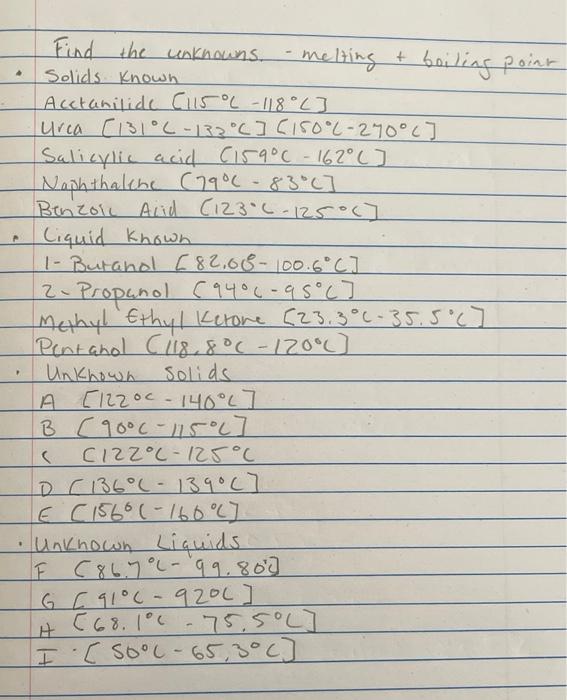 Find the unknowns. - melting + boiling point
• Solids Known
Acetanilide [115°C - 118°C]
Urea [131°C - 133°C] [150°C - 270°C]
Salicylic acid [159°C - 162°C]
Naphthalene [79°C - 83°C]
Benzoic Acid [123°C - 125°C]
• Liquid Known
1- Butanol [82.68 - 100.6°C]
2- Propanol [94°C - 95°C]
Methyl Ethyl Ketone [23.3°C - 35.5°C]
Pentanol [118.8°C - 120°C]
• Unknown Solids
A [122°C - 140°C]
B [90°C - 115°C]
C [122°C - 125°C
D [136°C - 139°C]
E [156°C - 160°C]
• Unknown Liquids
F [86.7°C - 99.80°]
G [91°C - 92°C]
H [68.1°C - 75.5°C]
I • [50°C - 65.3°C]